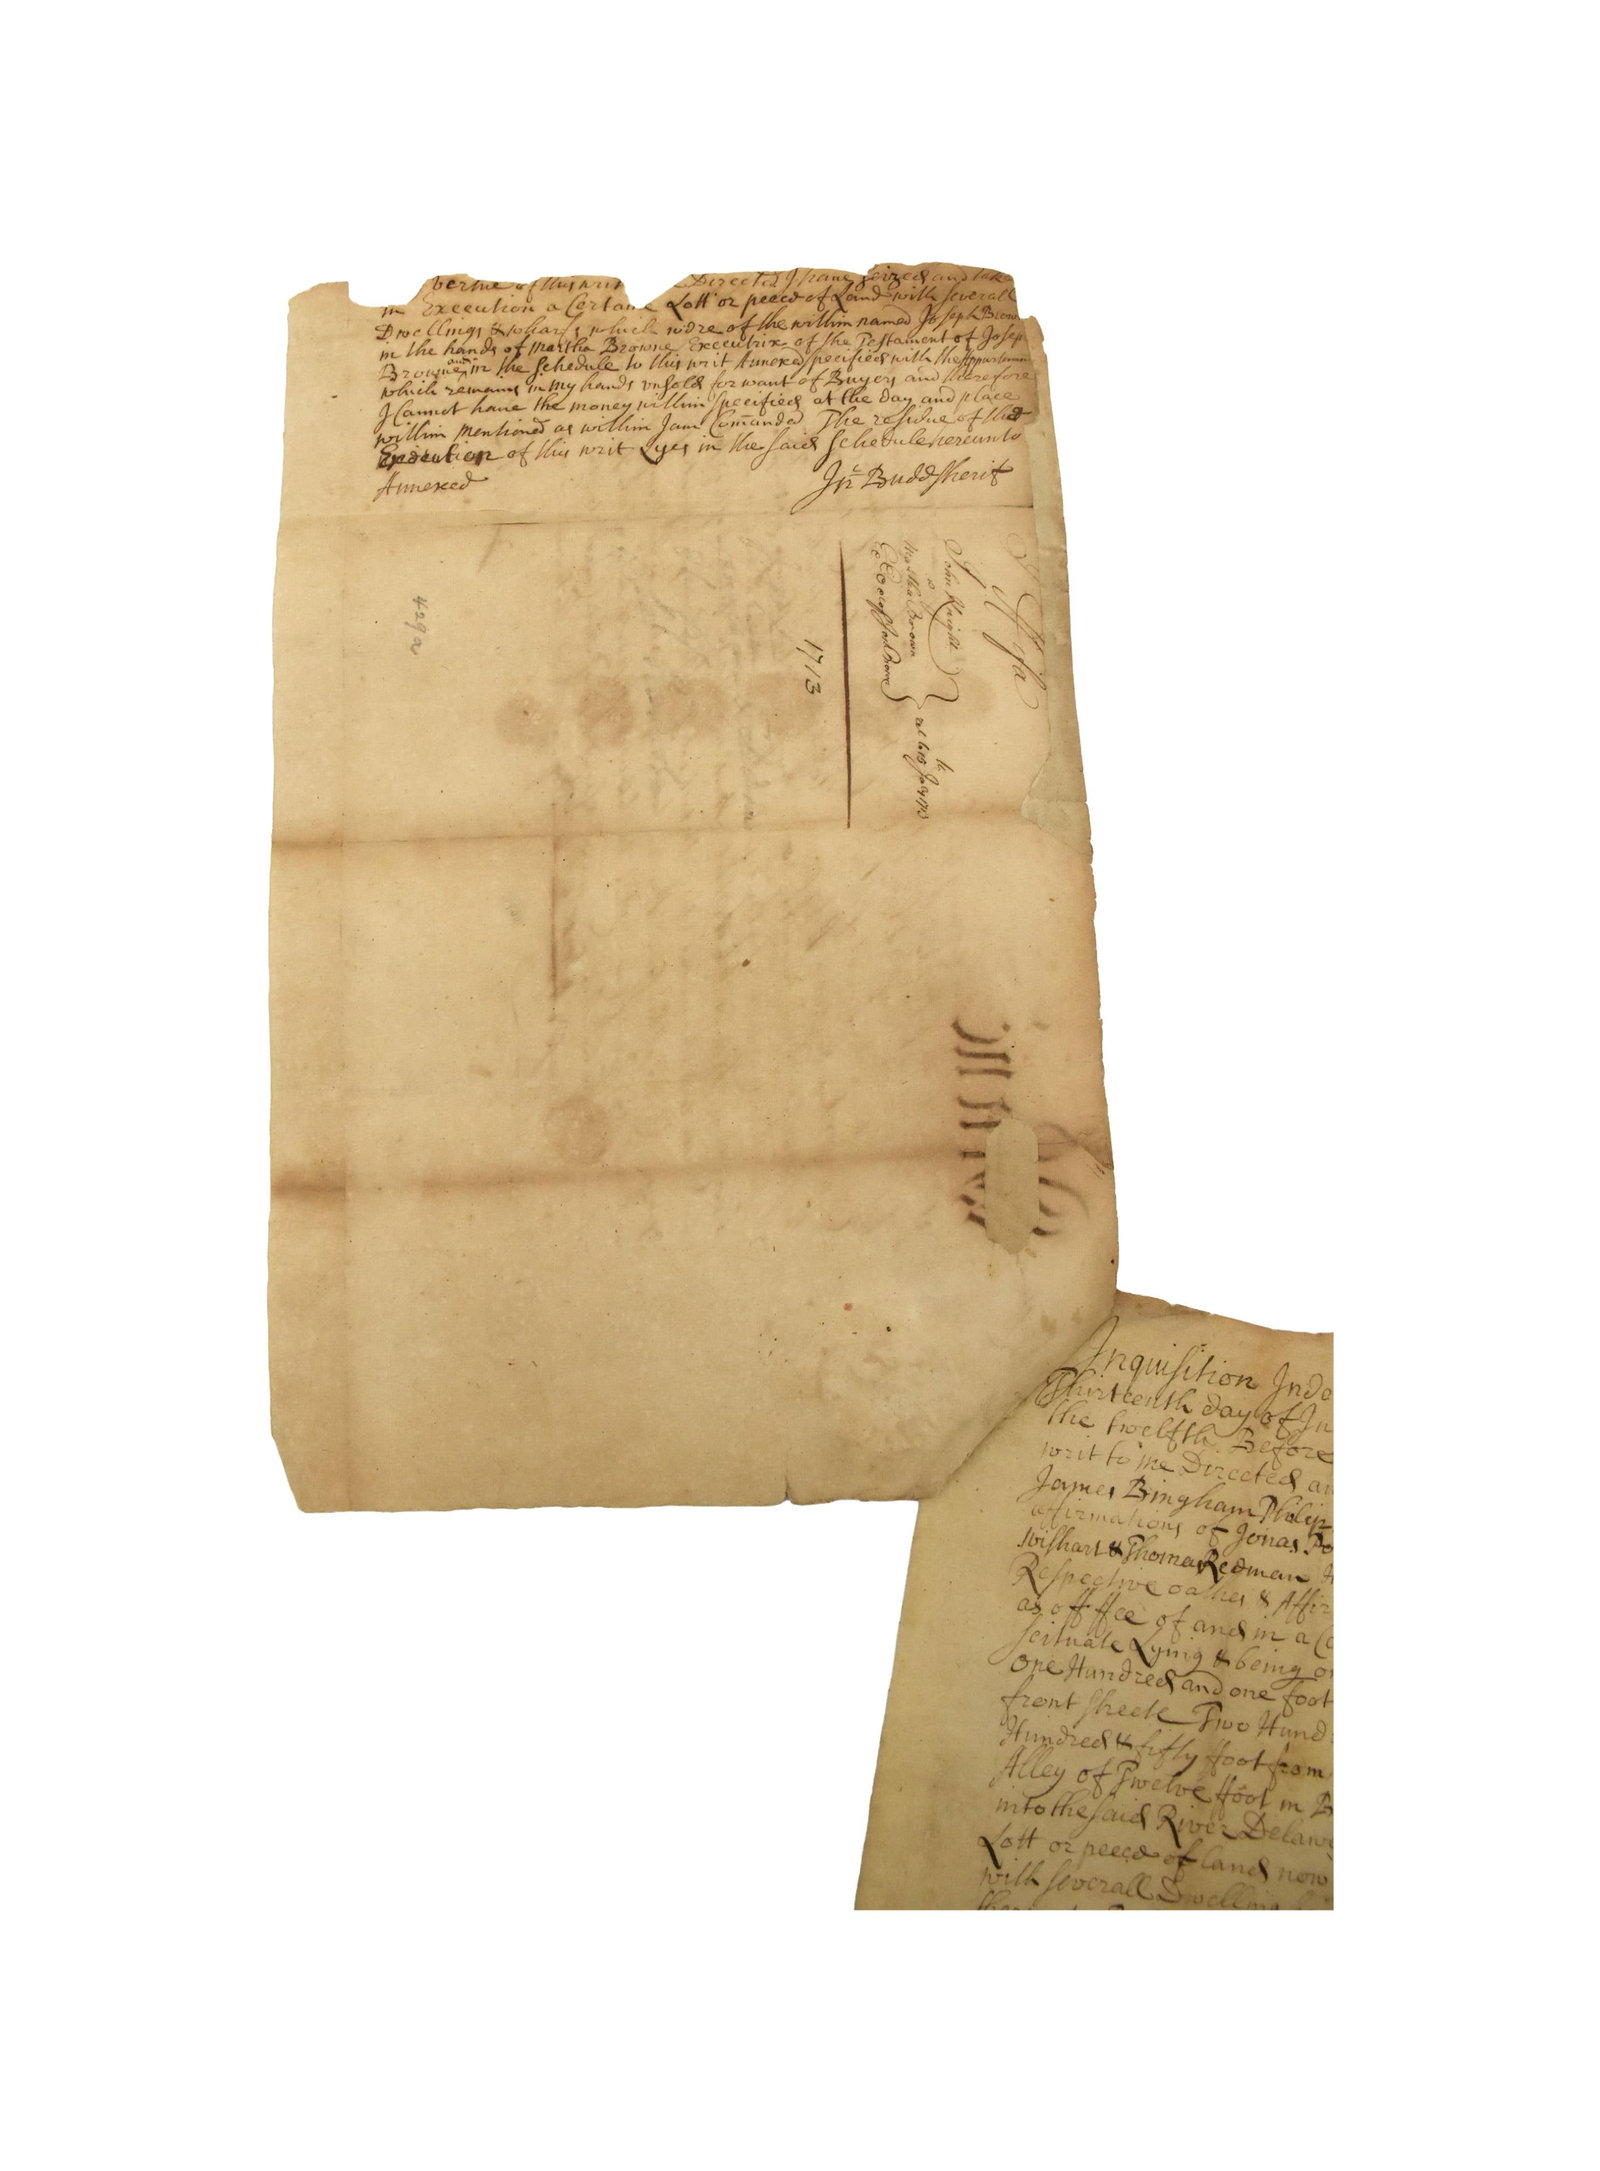 vertue of this writ Directed I have seized and take
in Execution a Certaine Lott or peece of Land with severall
Dwellings & wharfs which were of the within named Joseph Brow
in the hands of Martha Browne Executrix of the Testament of Josep
Browne and in the Schedule to this writ Annexed specified with the Appurtenan
which remains in my hands unsold for want of Buyers and therefore
I Cannot have the money within specified at the day and place
within mentioned as within I am Comanded The residue of the
Execution of this writ Lyes in the said Schedule hereunto
Annexed
Jno Budd Sherif
John Knight
vs
Martha Brown
Exec of Jos Browne
1713
429a
Inquisition Inde
Thirteenth day of Ju
the twelfth Before
writ to me Directed an
James Bingham Philip
affirmations of Jonas Po
Wishart & Thomas Redman
Respective oathes & Affir
as off ffee of and in a Ce
scituate Lying & being on
one Hundred and one foot
front streete Two Hund
Hundred & fifty ffoot from
Alley of Twelve ffoot in B
into the said River Delaw
Lott or peece of land now
with severall Dwelling